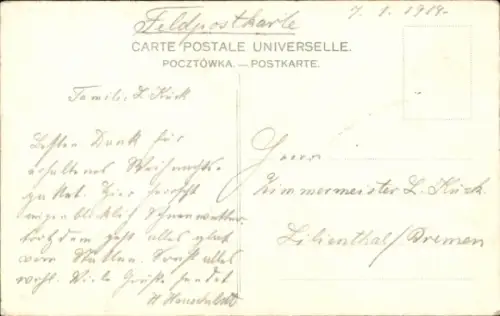 Feldpostkarte
7. 1. 1919.
CARTE POSTALE UNIVERSELLE.
POCZTÓWKA. — POSTKARTE.
Familie L. Kück
Besten Dank für
erhaltenes Weihnachts-
paket. Hier herrscht
augenblicklich Schneewetter
trotzdem geht alles glatt
vom Sonst alles
wohl. Viele Grüße sendet
H
Herrn
Zimmermeister L. Kück.
Lilienthal/Bremen